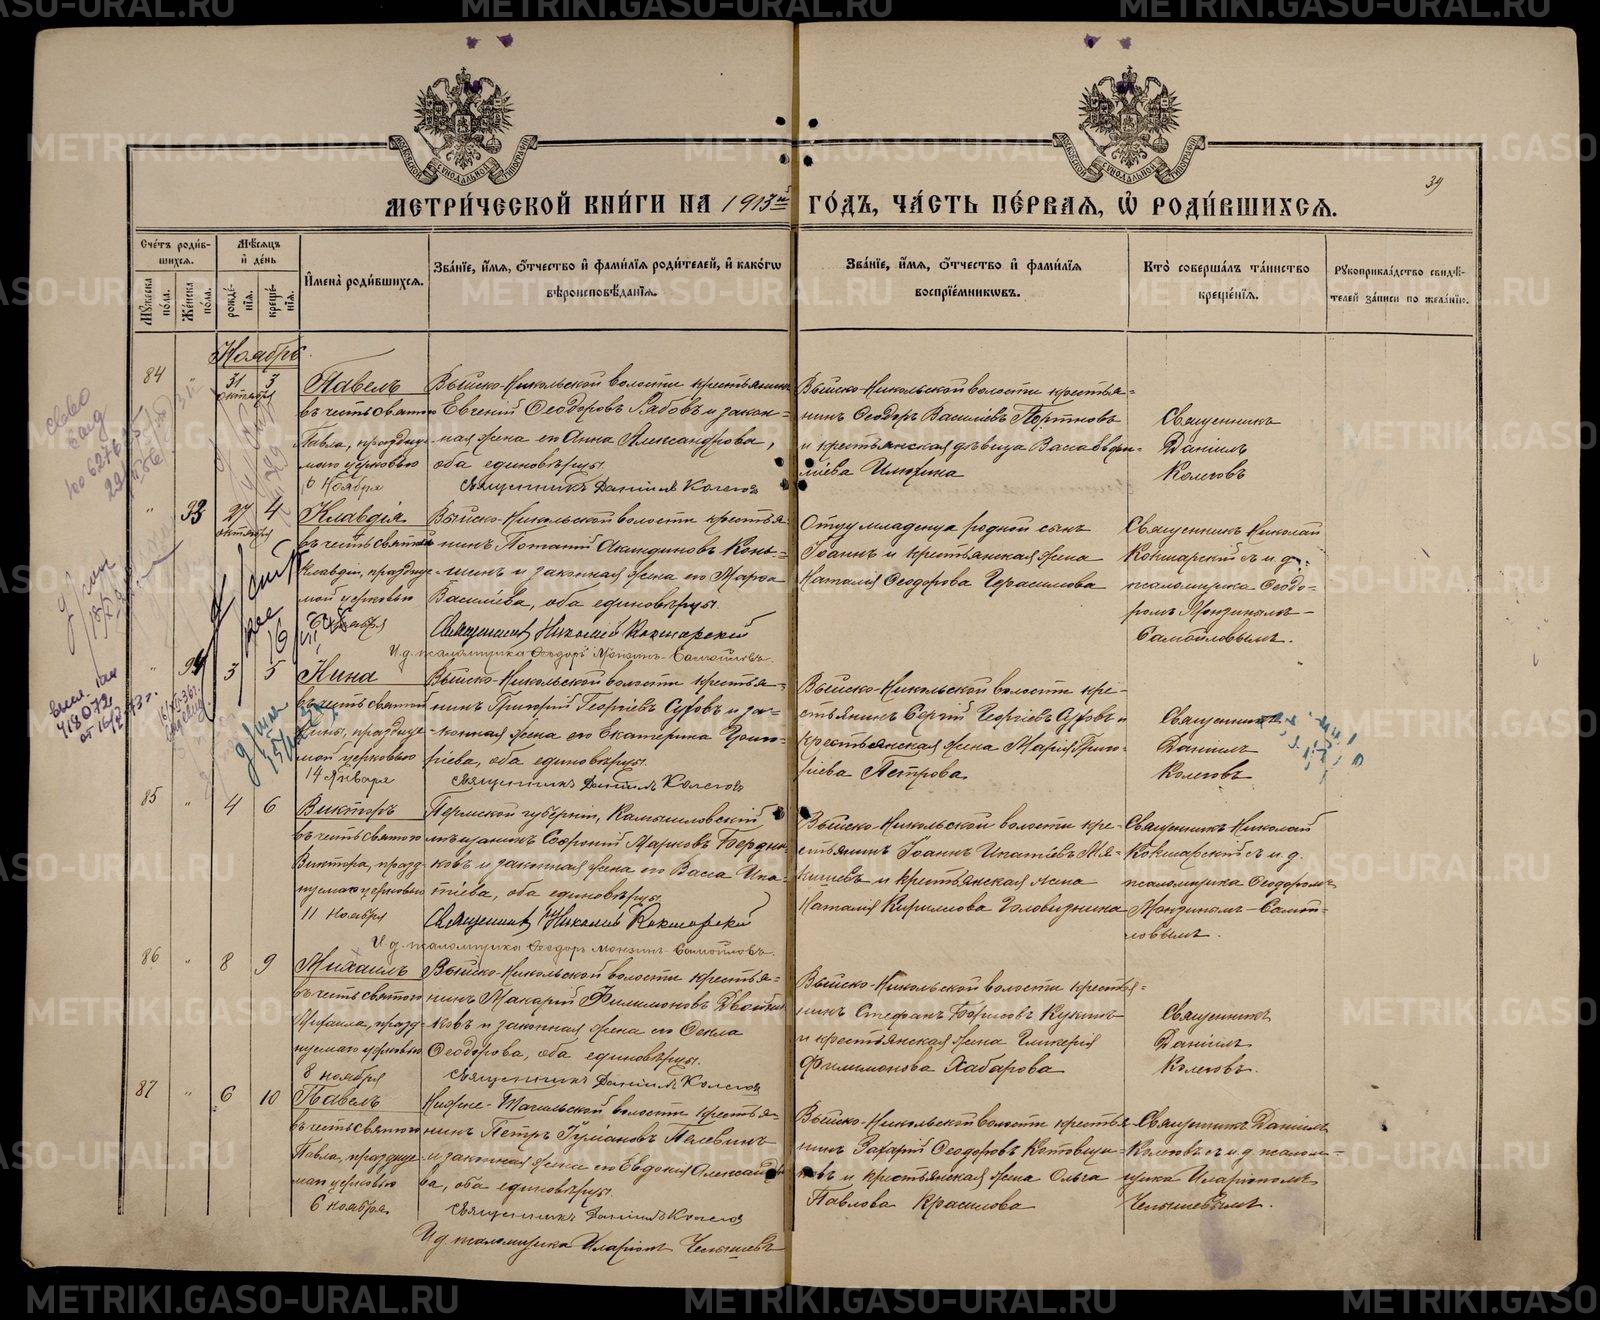 МЕТРИ́ЧЕСКОЙ КНИ́ГИ НА 1913й ГО́ДЪ, ЧА́СТЬ ПЕ́РВАЯ, Ѡ҆ РОДИ́ВШИХСЯ.
39
Сче́тъ роди́в-
шихся.
Мꙋ́жеска по́ла.
Же́нска по́ла.
Мѣ́сяцъ
и҆ де́нь
рожде́-
нїя.
креще́-
нїя.
И҆мена̀ роди́вшихся.
Зва́нїе, и҆́мя, ѻ҆́тчество и҆ фами́лїя роди́телей, и҆ како́гѡ
вѣроисповѣ́данїя.
Зва́нїе, и҆́мя, ѻ҆́тчество и҆ фами́лїя
воспрїе́мникѡвъ.
Кто̀ соверша́лъ та́инство
креще́нїя.
Рꙋкоприкла́дство свидѣ́-
телей за́писи по жела́нїю.
Ноябрь.
84 " 31 октября 3
Павелъ
въ честь святого
Павла, праздңуе-
маго церковью
6 Ноября
Выйско-Никольской волости крестьянинъ
Евгений Ѳеодоровъ Рябовъ и закон-
ная жена его Анна Александрова,
оба единовѣрцы.
Священникъ Даниилъ Колеговъ
Выйско-Никольской волости крестья-
нинъ Ѳеодоръ Василіевъ Портновъ
и крестьянская дѣвица Васса
Священникъ
Даніилъ
Колеговъ
" 33 27 октября 4
Клавдія
въ честь святой
Клавдіи, праздңуе-
мой церковью
6 Ноября
Выйско-Никольской волости крестья-
нинъ Потапій Акиндиновъ Конь-
шинъ и законная жена его Марѳа
Василіева, оба единовѣрцы.
Священникъ Николай Кокшарскій
И.д. псаломщика Ѳеодоръ Монзинъ-Самойловъ.
Отцу младенца родной сынъ
Іоаннъ и крестьянская жена
Наталія Ѳеодорова Герасимова
Священникъ Николай
Кокшарскій съ и.д.
псаломщика Ѳеодо-
ромъ Монзинымъ-
Самойловымъ.
" 34 3 5
Нина
въ честь святой
Нины, праздңуе-
мой церковью
14 Января
Выйско-Никольской волости крестья-
нинъ Григорій Георгіевъ Суховъ и за-
конная жена его Екатерина Григо-
ріева, оба единовѣрцы.
Священникъ Даніилъ Колеговъ
Выйско-Никольской волости кре-
стьянинъ Сергій Георгіевъ Суховъ и
крестьянская жена Марія Григо-
ріева Петрова
Священникъ
Даніилъ
Колеговъ
85 " 4 6
Викторъ
въ честь святого
Виктора, празд-
нуемаго церковью
11 ноября
Пермской губерніи, Камышловскій
мѣщанинъ Софроній Марковъ Бердни-
ковъ и законная жена его Васса Ипа-
тіева, оба единовѣрцы
Священникъ Николай Кокшарскій
И.д. псаломщика Ѳеодоръ Монзинъ-Самойловъ.
Выйско-Никольской волости кре-
стьянинъ Іоаннъ Ипатіевъ Мя-
кишевъ и крестьянская жена
Наталія Кириллова Головизнина
Священникъ Николай
Кокшарскій съ и.д.
псаломщика Ѳеодоромъ
Монзинымъ-Самой-
ловымъ.
86 " 8 9
Михаилъ
въ честь святого
Михаила, празд-
нуемаго церковью
8 ноября
Выйско-Никольской волости крестья-
нинъ Макарій Филимоновъ Двойни-
ковъ и законная жена его Ѳекла
Ѳеодорова, оба единовѣрцы.
Священникъ Даніилъ Колеговъ
Выйско-Никольской волости крестья-
нинъ Стефанъ Борисовъ Кукинъ
и крестьянская жена Гликерія
Филимонова Хабарова
Священникъ
Даніилъ
Колеговъ.
87 " 6 10
Павелъ
въ честь святого
Павла, праздңуе-
маго церковью
6 ноября
Нижне-Тагильской волости крестья-
нинъ Петръ Пелевинъ
и законная жена его Евдокія Александро-
ва, оба единовѣрцы.
Священникъ Даніилъ Колеговъ
И.д. псаломщика Иларіонъ Челышевъ
Выйско-Никольской волости крестья-
нинъ Захарій Ѳеодоровъ Котовщи-
ковъ и крестьянская жена Ольга
Павлова Красилова
Священникъ Даніилъ
Колеговъ съ и.д. псалом-
щика Иларіономъ
Челышевымъ.
METRIKI.GASO-URAL.RU